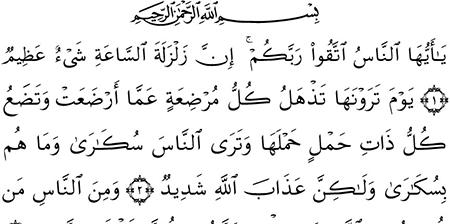 بِسْمِ اللَّهِ الرَّحْمَٰنِ الرَّحِيمِ
يَـٰٓأَيُّهَا ٱلنَّاسُ ٱتَّقُوا۟ رَبَّكُمْ ۚ إِنَّ زَلْزَلَةَ ٱلسَّاعَةِ شَىْءٌ عَظِيمٌ
﴿١﴾ يَوْمَ تَرَوْنَهَا تَذْهَلُ كُلُّ مُرْضِعَةٍ عَمَّآ أَرْضَعَتْ وَتَضَعُ
كُلُّ ذَاتِ حَمْلٍ حَمْلَهَا وَتَرَى ٱلنَّاسَ سُكَـٰرَىٰ وَمَا هُم
بِسُكَـٰرَىٰ وَلَـٰكِنَّ عَذَابَ ٱللَّهِ شَدِيدٌ ﴿٢﴾ وَمِنَ ٱلنَّاسِ مَن